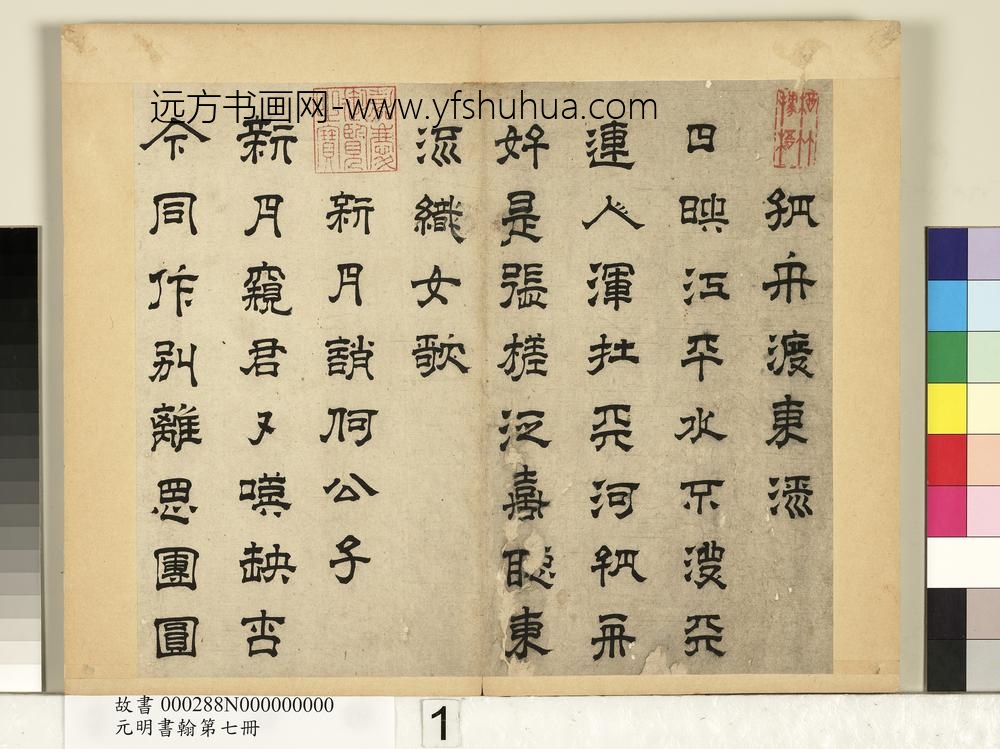 远方书画网-www.yfshuhua.com
舟渡東流
日映江平水不波天
連人渾在天河舟
好是張槎泛喜聽東
流織女歌
新月誚何公子
新月窺君又嘆缺否
今同作別離思團圓
嘉慶
御覽
之寶
故書 000288N000000000
元明書翰第七冊
1